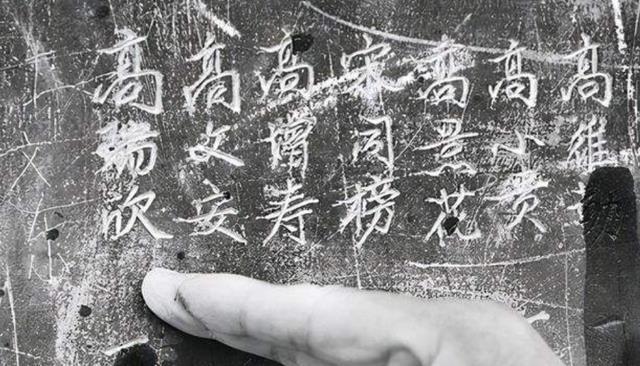 高維
高小贵
高景花
宋同榜
高增寿
高文安
高瑞欣